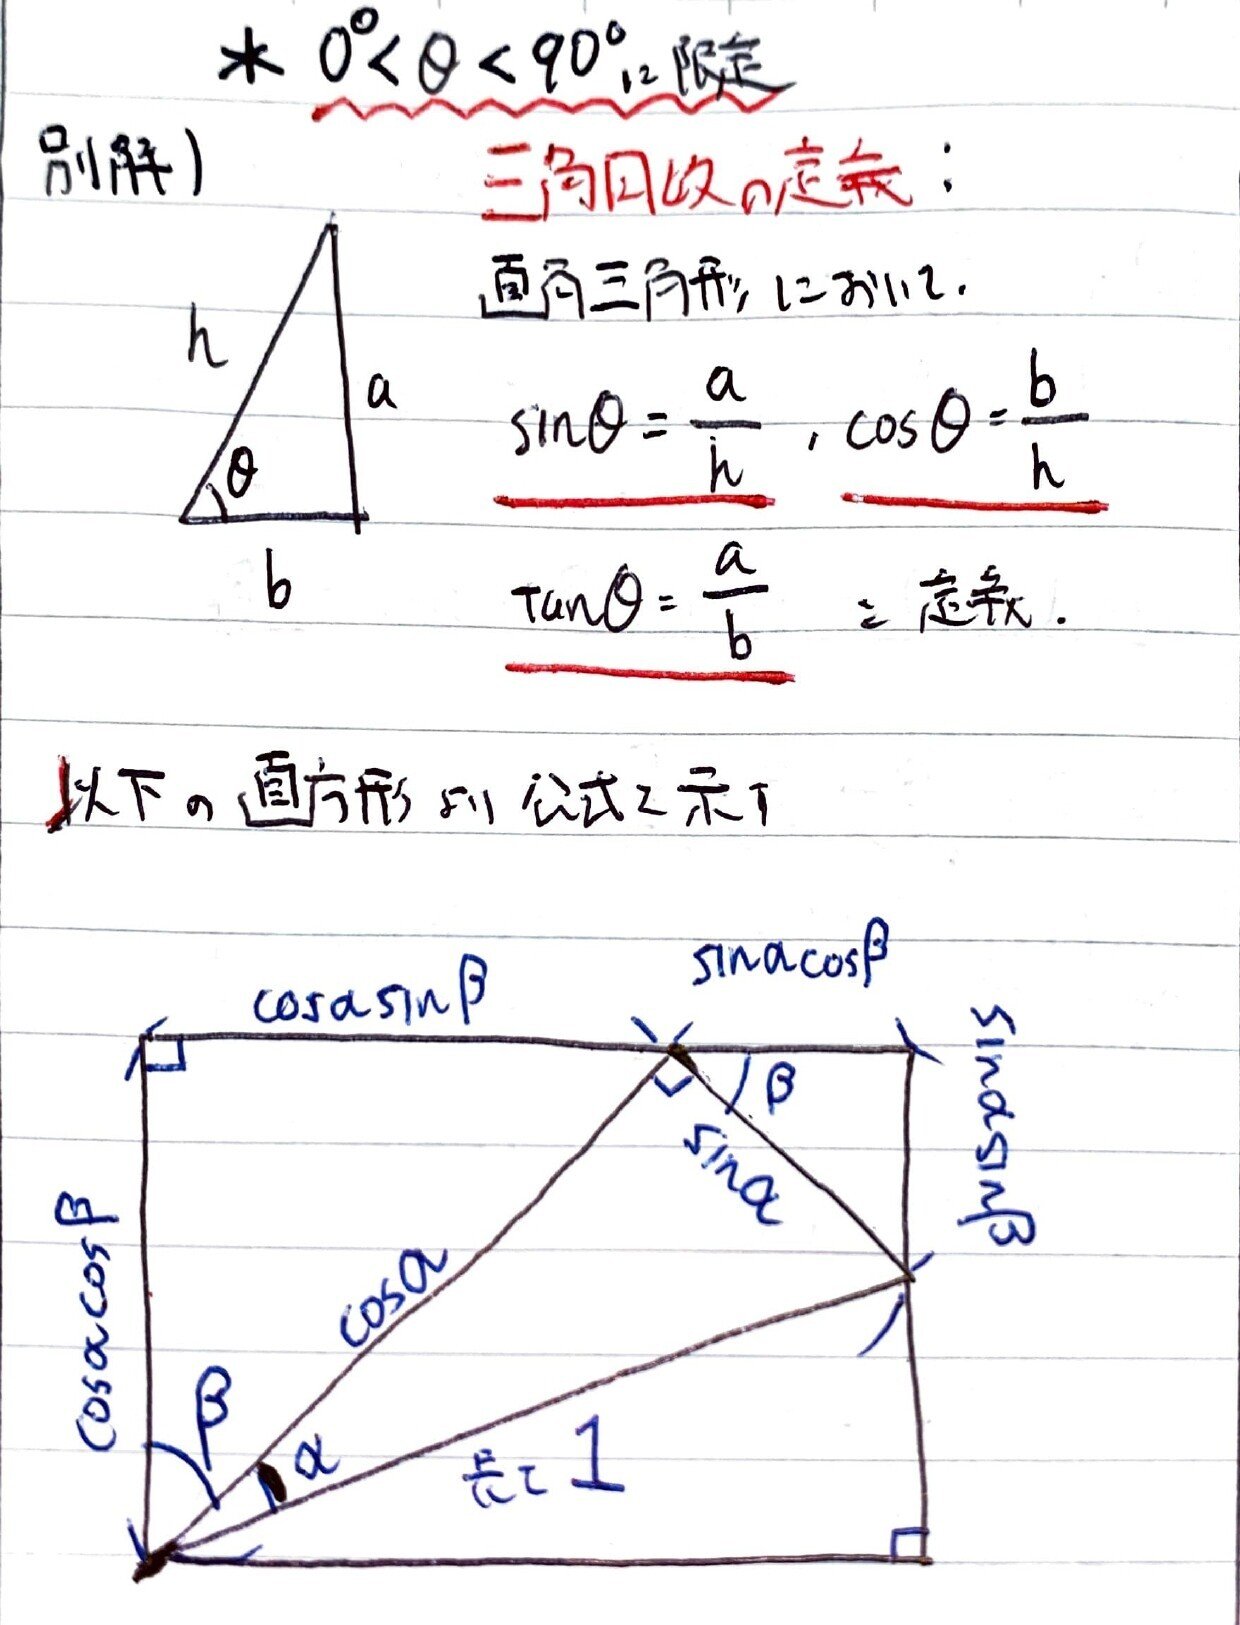 * 0°<θ<90°に限定
別解)
三角関数の定義:
直角三角形において.
h
a
θ
b
sinθ = a/h , cosθ = b/h
tanθ = a/b と定義.
以下の直方形より公式を示す
cosαsinβ
sinαcosβ
sinαsinβ
β
sinα
cosαcosβ
cosα
β
α
長さ1